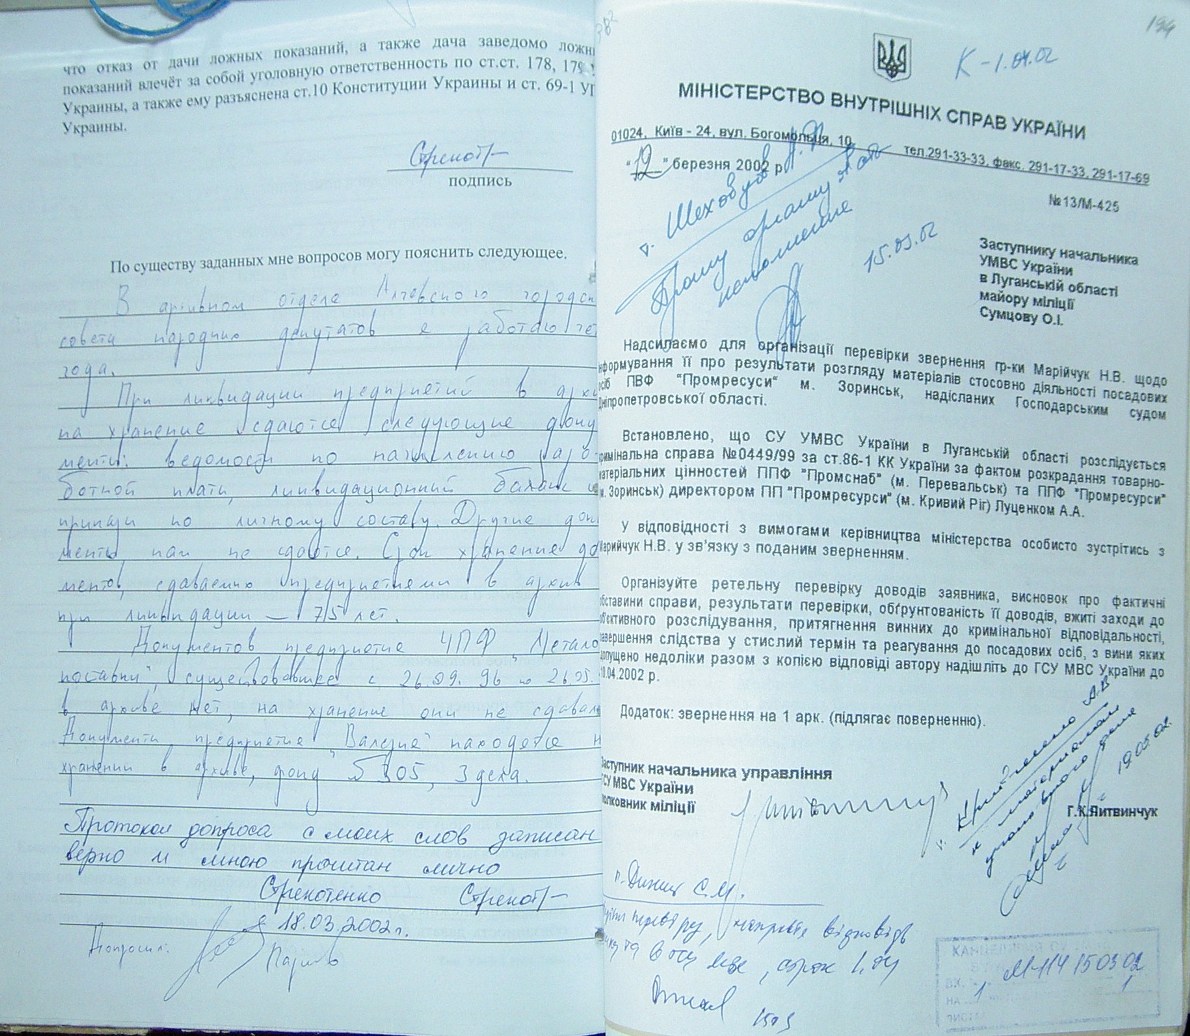 что отказ от дачи ложных показаний, а также дача заведомо ложн
показаний влечёт за собой уголовную ответственность по ст.ст. 178, 179
Украины, а также ему разъяснена ст.10 Конституции Украины и ст. 69-1 УП
Украины.
подпись
По существу заданных мне вопросов могу пояснить следующее.
В архивном отделе Алчевского городск
совета народных депутатов я работаю
года.
При ликвидации предприятий в архи
на хранение сдаются следующие доку
менты: ведомости по начислению зара
ботной платы, ликвидационный баланс
приказы по личному составу. Другие док
менты нам не сдаются. Срок хранения до
ментов, сдаваемых предприятиями в архив
при ликвидации – 75 лет.
Документов предприятие ЧПФ "Метало
поставки", существовавшее с 26.09.96 по 26.05.
в архиве нет, на хранение они не сдавал
Документы предприятия "Валерия" находятся н
хранении в архиве, фонд 305, 3 дела.
Протокол допроса с моих слов записан
верно и мною прочитан лично
Стрекотенко
18.03.2002г.
Допросил:
194
К-1.04.02
МІНІСТЕРСТВО ВНУТРІШНІХ СПРАВ УКРАЇНИ
01024, Київ - 24, вул. Богомольця, 10
тел.291-33-33, факс. 291-17-33, 291-17-69
"12" березня 2002 р
№13/М-425
т. Шеховцов А.Ф.
Прошу
исполнение
15.03.02
Заступнику начальника
УМВС України
в Луганській області
майору міліції
Сумцову О.І.
Надсилаємо для організації перевірки звернення гр-ки Марійчук Н.В. щодо
нформування її про результати розгляду матеріалів стосовно діяльності посадових
осіб ПВФ "Промресуси" м. Зоринськ, надісланих Господарським судом
Дніпропетровської області.
Встановлено, що СУ УМВС України в Луганській області розслідується
римінальна справа №0449/99 за ст.86-1 КК України за фактом розкрадання товарно-
матеріальних цінностей ППФ "Промснаб" (м. Перевальськ) та ППФ "Промресурси"
м. Зоринськ) директором ПП "Промресурси" (м. Кривий Ріг) Луценком А.А.
У відповідності з вимогами керівництва міністерства особисто зустрітись з
Марийчук Н.В. у зв'язку з поданим зверненням.
Організуйте ретельну перевірку доводів заявника, висновок про фактичні
обставини справи, результати перевірки, обґрунтованість її доводів, вжиті заходи до
об'єктивного розслідування, притягнення винних до кримінальної відповідальності,
завершення слідства у стислий термін та реагування до посадових осіб, з вини яких
допущено недоліки разом з копією відповіді автору надішліть до ГСУ МВС України до
.04.2002 р.
Додаток: звернення на 1 арк. (підлягає поверненню).
Заступник начальника управління
ГСУ МВС України
полковник міліції
Г.К.Литвинчук
к материалам
уголовного дела
19.03.02.
перевірку, направте відповідь
М-114 15 03 02